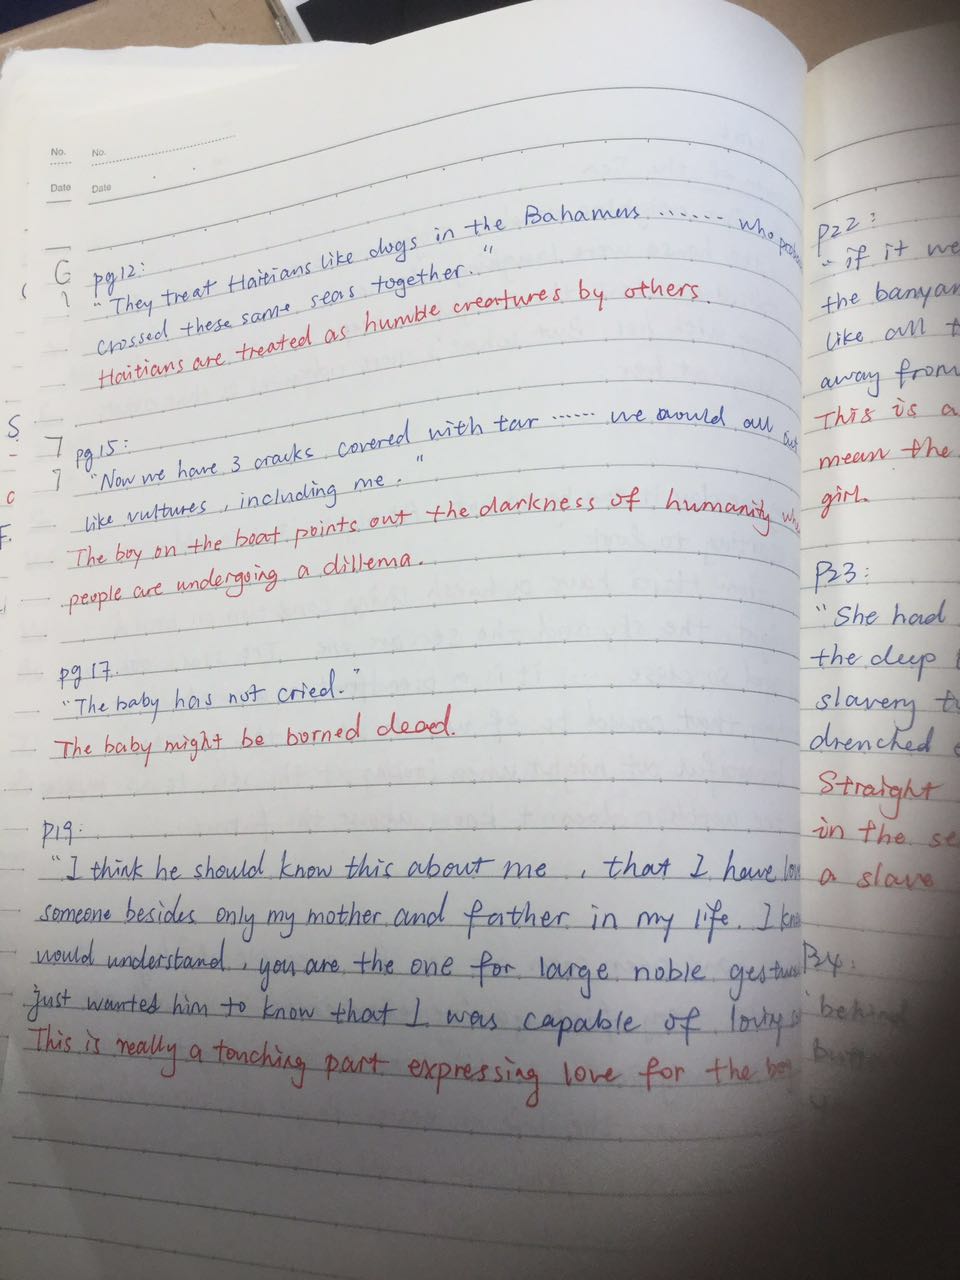 No.
No.
Date
Date
pg12:
"They treat Haitians like dogs in the Bahamers ...... who
crossed these same seas together."
Haitians are treated as humble creatures by others.
pg15:
"Now we have 3 cracks covered with tar ...... we would all
like vultures, including me."
The boy on the boat points out the darkness of humanity
people are undergoing a dillema.
pg17.
"The baby has not cried."
The baby might be borned dead.
p19:
"I think he should know this about me, that I have
someone besides only my mother and father in my life. I
would understand, you are the one for large noble
just wanted him to know that I was capable of loving
This is really a touching part expressing love for the
p22:
"if it we
the banyan
like all t
away from
This is a
mean the
girl.
P23:
"She had
the deep
slavery
drenched
Straight
in the se
a slave
behind